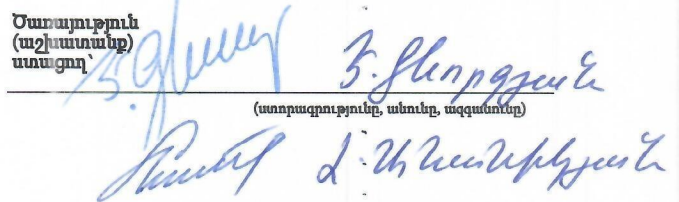 Ծառայություն
(աշխատանք)
ստացող՝ Ֆ. Գևորգյան
(ստորագրությունը, անունը, ազգանունը)
Հ. Անանիկյան